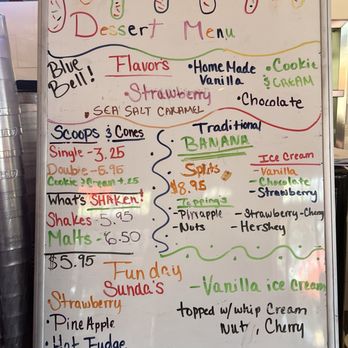 Dessert Menu
Blue Bell!
Flavors
• Home Made Vanilla
• Cookie & CREAM
• Strawberry
• Chocolate
• SEA SALT CARAMEL
Scoops & Cones
Single - 3.25
Double - 5.95
Cookie & Cream + .25
What's SHAKEN!
Shakes - 5.95
Malts - 6.50
Traditional
BANANA
Splits
$8.95
Ice Cream
- Vanilla
- Chocolate
- Strawberry
Toppings
- Pinapple
- Nuts
- Strawberry - Cherry
- Hershey
$5.95
Funday
Sunda's
- Vanilla ice cream
topped w/ whip Cream
Nut, Cherry
• Strawberry
• Pine Apple
• Hot Fudge